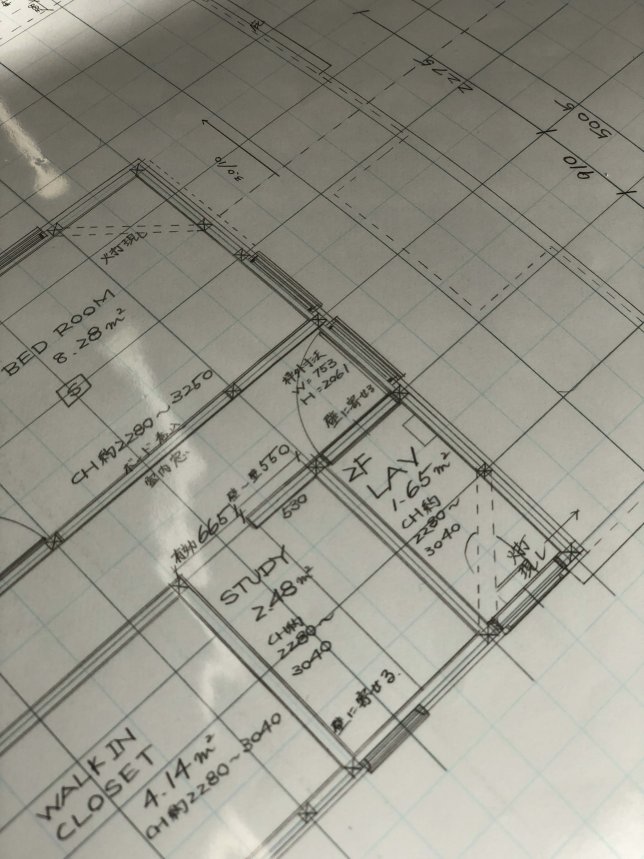 2275
5005
910
3.0/10
火打現し
BED ROOM
8.28 m²
S
CH約2280~3250
室内窓
枠外寸法
W=753
H=2061
壁に寄せる
2F
LAV
1.65 m²
CH約
2280~
3040
火打
現し
有効665
壁-壁550
530
STUDY
2.48 m²
CH約
2280~
3040
壁に寄せる.
WALK IN
CLOSET
4.14 m²
CH約2280~3040